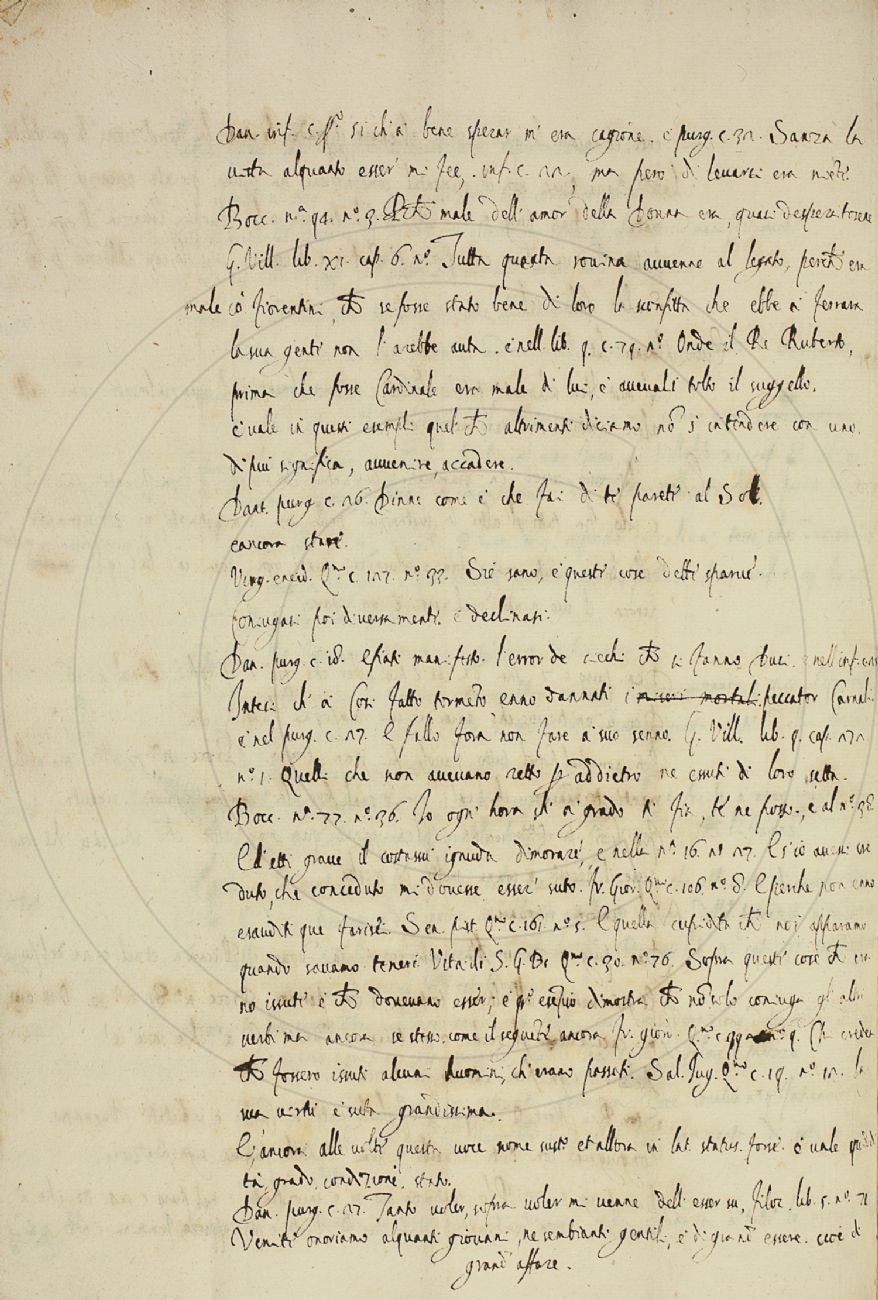 Dan. inf. c. pº. Si ch' a bene sperar m' era cagione. e purg. c. 32. Sanza la
vista alquanto esser mi fee, . inf. c. 22, ma però di levarsi era niente.
Bocc. nª. 94. nº. 3. male dell' amor della Donna era, quasi desperatosene
G. Vill. lib. XI. cap. 6. nº. Tutta questa rovina avvenne al legato, perchè era
male co' Fiorentini, che se fosse stato bene di loro la sconfitta che ebbe a Ferrara
la sua gente non l' arebbe auta. e nell lib. 9. c. 79. nº. Onde il Re Ruberto,
prima che fosse Cardinale era male di lui, e avevali tolto il suggello.
e vale in questi esempli quel che altrimenti diciamo nō s' intendere con uno.
di più significa, avvenire, accadere.
Dant. purg. c. 26. Dinne come è che fai di te parete al Sol.
e ancora stare.
Virg. eneid. Qº. c. 127. nº. 33. Siè sano, e queste cose dette sparve.
Coniugasi poi diversamente. e declinasi.
Dan. purg. c. 18. E fiati manifesto. l' error de ciechi che si fanno Duci. e nell' inf.
Intesi ch' a così fatto tormēto enno dannati i miseri mortali peccator Carnal.
e nel purg. c. 27. E fallo fora non fare a suo senno. G. Vill. lib. 9. cap. 272
nº. 1. Quelli che non avevano retto p addietro ne essuti di loro setta.
Bocc. nª. 77. nº. 36. Io ogni hora ch' a grado ti fia, te ne posso, e al nº. 38
E l' etti grave il costassù ignuda dimorare, e nella nª. 16. nº. 27. E s' io avessi cre
duto, che conceduto mi dovesse esser suto. Fr. Gior. Qº. c. 106. nº. 8. E perche non enno
esauditi que farisei. Sen. pist. Qº. c. 161. nº. 5. E quella cupidità che noi apparamo
quando savamo teneri Vita di S. G. B. Qº. c. 30. nº. 76. Sopra queste cose che era
no issute e che dovevano essere, e qº. esēpio dimostra che nō solo coniuga gl' altri
verbi ma ancora se stesso, come il seguēte ancora Fr. giord. Qº. c. 99 nº. 9. Chi crede
che fossero issuti alcuni huomini, ch' erano passati. Sal. Jug. Qº. c. 19. nº. 12. la
sua virtù è suta grandissima.
E' ancora alle volte questa voce nome sustº. et allora in lat. status. forse. e vale quali
tà, grado, condizione, stato.
Dan. purg. c. 27. Tanto voler, sopra voler mi venne dell' esser su, Filoc. lib. 5. nº. 71
Venite onoriamo alquanti giovani, ne sembianti gentili, e di grand' essere. cioè di
grand' affare.